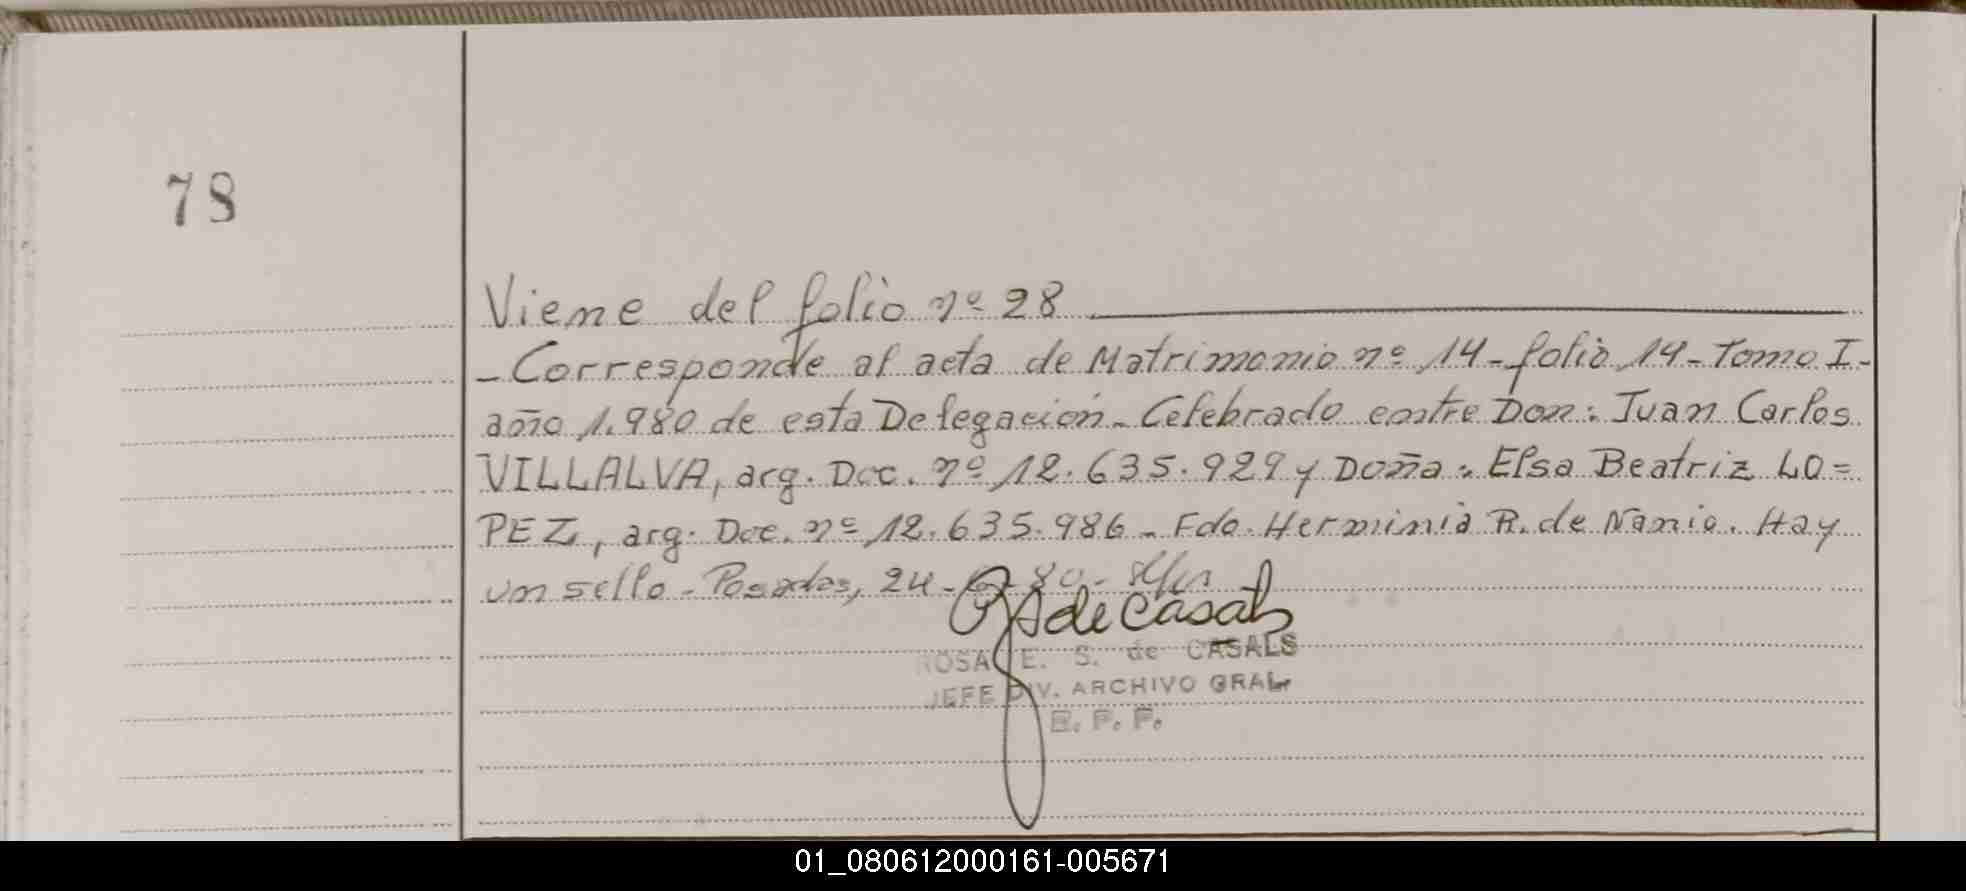 78
Viene del folio nº 28
- Corresponde al acta de Matrimonio nº 14 - folio 14 - Tomo I -
año 1.980 de esta Delegación - Celebrado entre Don: Juan Carlos
VILLALVA, arg. Doc. nº 12.635.929 y Doña: Elsa Beatriz LO=
PEZ, arg. Doc. nº 12.635.986 - Fdo. Herminia R. de Nanio. Hay
un sello - Posadas, 24 - 80 -
de Casals
ROSA E. S. de CASALS
JEFE DIV. ARCHIVO GRAL
R. P. P.
01_080612000161-005671